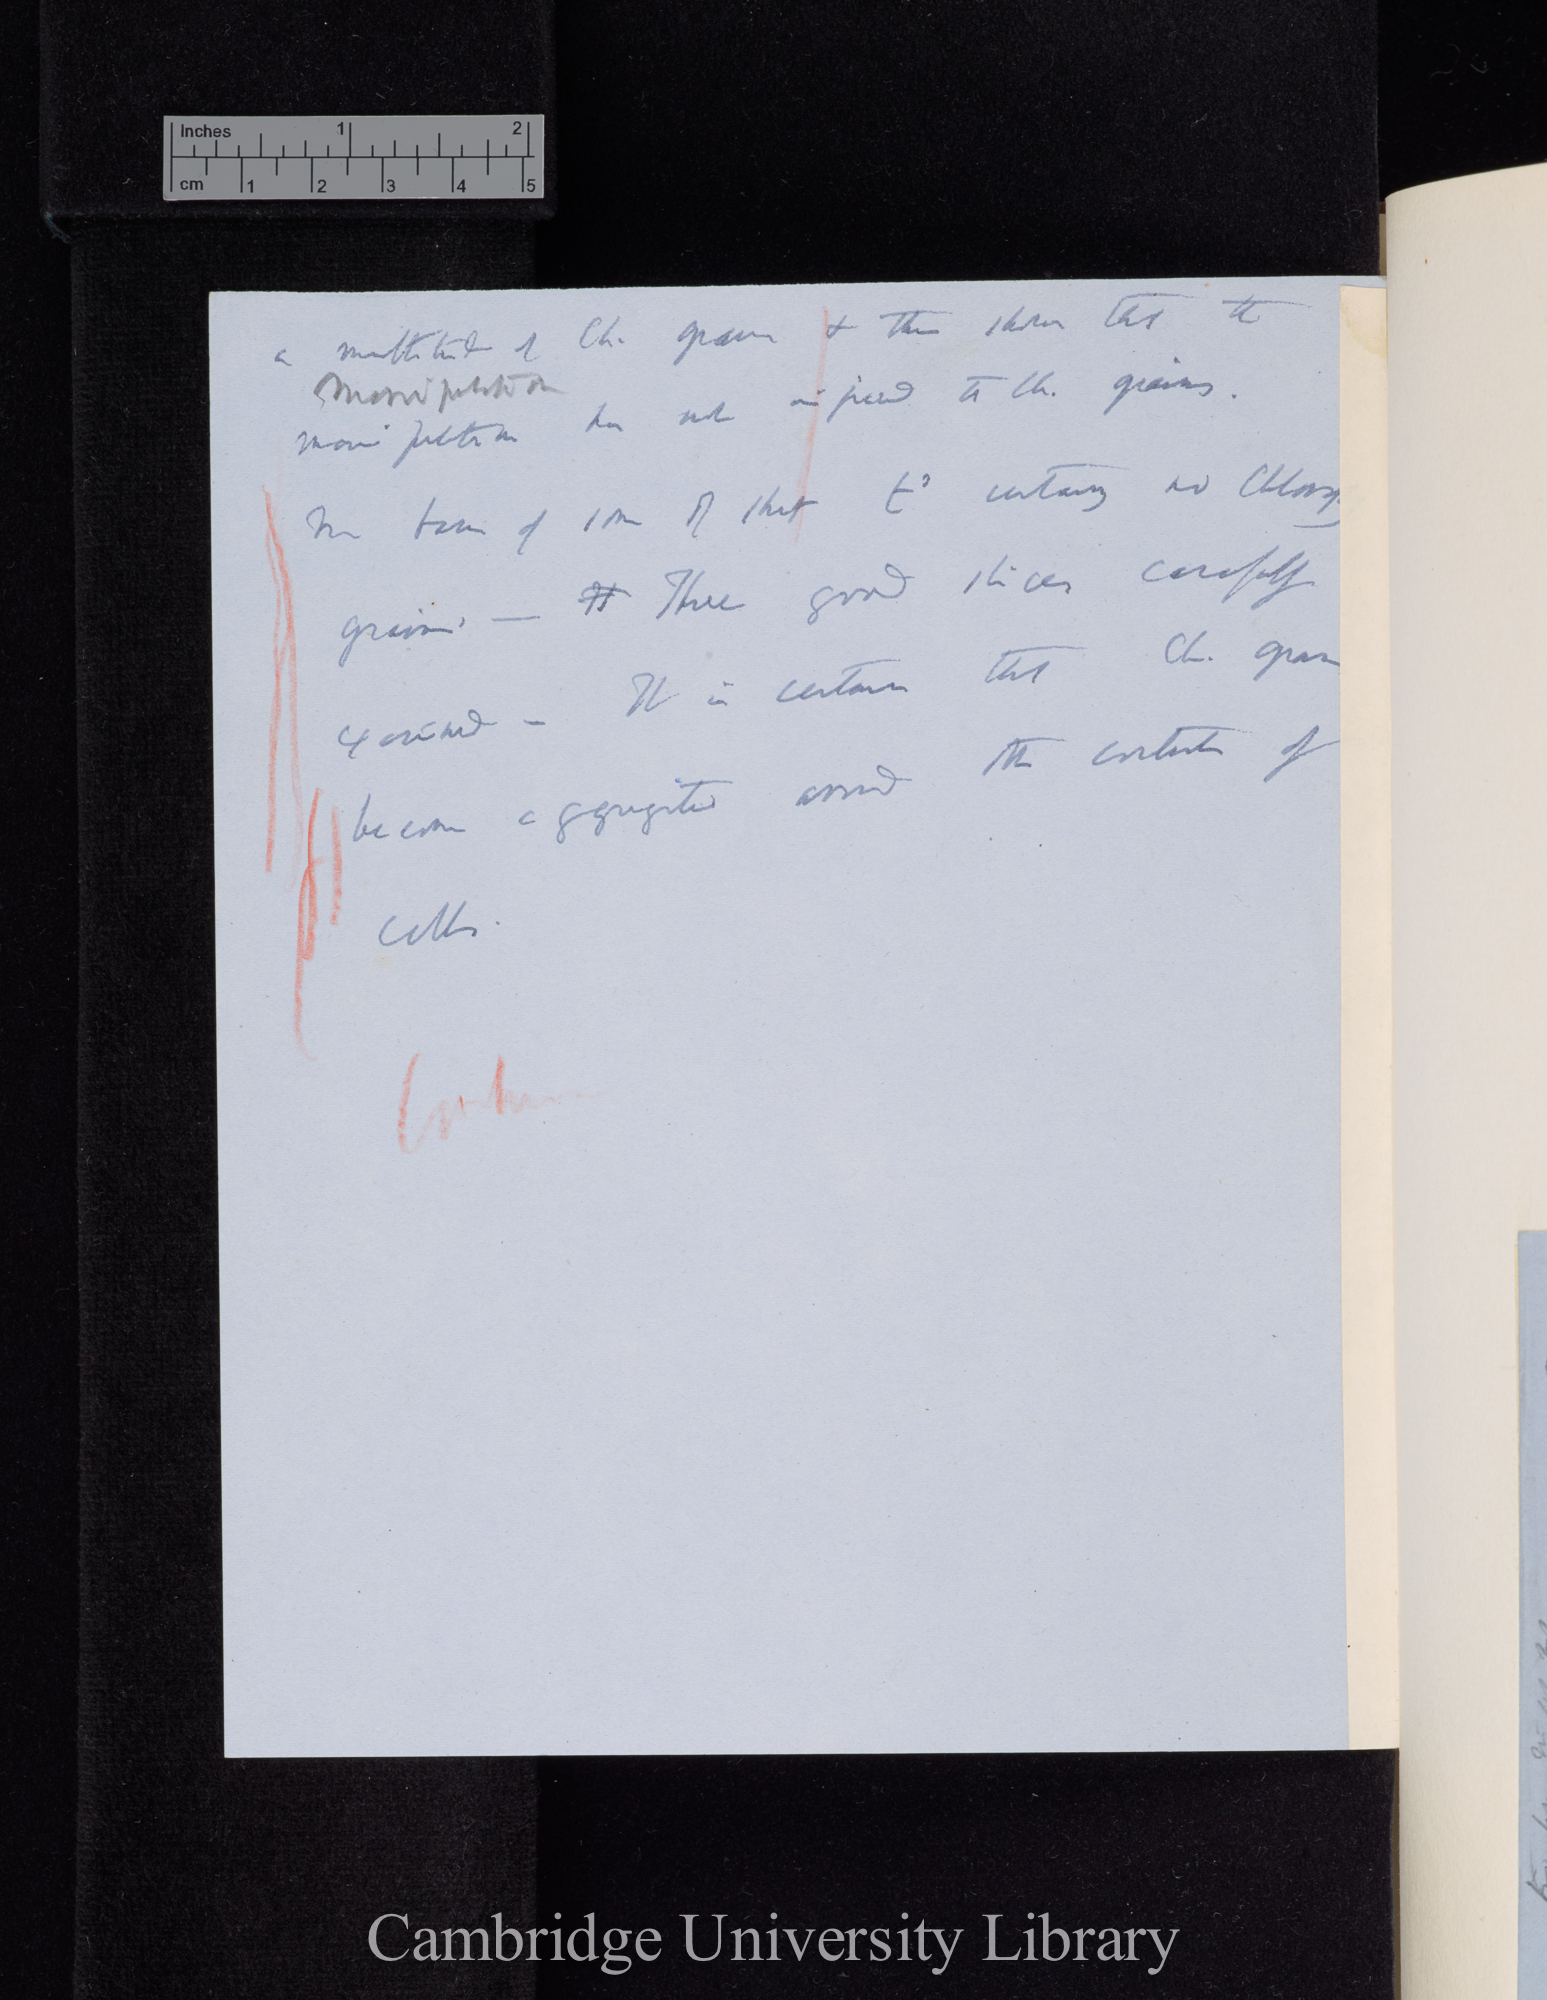 Inches 1 2
cm 1 2 3 4 5
a multitude of Ch. grains & this shows that the
manipulation
manipulation has not injured the Ch. grains.
base of some of that certainly no Chlorop
grains — Three good slices carefully
examined — It is certain that Ch. grains
become aggregated around the contents of
cells.
Cambridge University Library